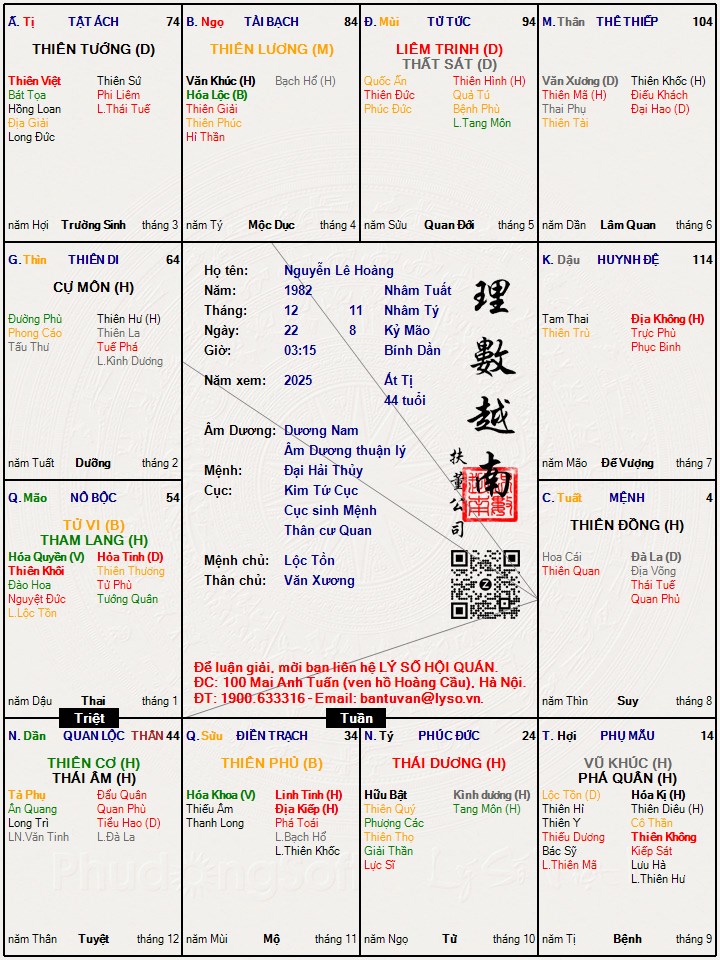 Ă. Tị TẬT ÁCH 74
THIÊN TƯỚNG (D)
Thiên Việt Thiên Sứ
Bát Tọa Phi Liêm
Hồng Loan L.Thái Tuế
Địa Giải
Long Đức
năm Hợi Trường Sinh tháng 3
B. Ngọ TÀI BẠCH 84
THIÊN LƯƠNG (M)
Văn Khúc (H) Bạch Hổ (H)
Hóa Lộc (B)
Thiên Giải
Thiên Phúc
Hỉ Thần
năm Tý Mộc Dục tháng 4
Đ. Mùi TỬ TỨC 94
LIÊM TRINH (D)
THẤT SÁT (D)
Quốc Ấn Thiên Hình (H)
Thiên Đức Quả Tú
Phúc Đức Bệnh Phù
L.Tang Môn
năm Sửu Quan Đới tháng 5
M. Thân THÊ THIẾP 104
Văn Xương (D) Thiên Khốc (H)
Thiên Mã (H) Điếu Khách
Thai Phụ Đại Hao (D)
Thiên Tài
năm Dần Lâm Quan tháng 6
G. Thìn THIÊN DI 64
CỰ MÔN (H)
Đường Phù Thiên Hư (H)
Phong Cáo Thiên La
Tấu Thư Tuế Phá
L.Kình Dương
năm Tuất Dưỡng tháng 2
Họ tên: Nguyễn Lê Hoàng
Năm: 1982 Nhâm Tuất
Tháng: 12 11 Nhâm Tý
Ngày: 22 8 Kỷ Mão
Giờ: 03:15 Bính Dần
Năm xem: 2025 Ất Tị
44 tuổi
Âm Dương: Dương Nam
Âm Dương thuận lý
Mệnh: Đại Hải Thủy
Cục: Kim Tứ Cục
Cục sinh Mệnh
Thân cư Quan
Mệnh chủ: Lộc Tồn
Thân chủ: Văn Xương
理數越南
扶董公司
Để luận giải, mời bạn liên hệ LÝ SỐ HỘI QUÁN.
ĐC: 100 Mai Anh Tuấn (ven hồ Hoàng Cầu), Hà Nội.
ĐT: 1900.633316 - Email: bantuvan@lyso.vn.
K. Dậu HUYNH ĐỆ 114
Tam Thai Địa Không (H)
Thiên Trù Trực Phù
Phục Binh
năm Mão Đế Vượng tháng 7
Q. Mão NÔ BỘC 54
TỬ VI (B)
THAM LANG (H)
Hóa Quyền (V) Hỏa Tinh (D)
Thiên Khôi Thiên Thương
Đào Hoa Tử Phù
Nguyệt Đức Tướng Quân
L.Lộc Tồn
năm Dậu Thai tháng 1
C. Tuất MỆNH 4
THIÊN ĐỒNG (H)
Hoa Cái Đà La (D)
Thiên Quan Địa Võng
Thái Tuế
Quan Phủ
năm Thìn Suy tháng 8
Triệt
Tuần
N. Dần QUAN LỘC THÂN 44
THIÊN CƠ (H)
THÁI ÂM (H)
Tả Phụ Đẩu Quân
Ân Quang Quan Phù
Long Trì Tiểu Hao (D)
LN.Văn Tinh L.Đà La
năm Thân Tuyệt tháng 12
Q. Sửu ĐIỀN TRẠCH 34
THIÊN PHỦ (B)
Hóa Khoa (V) Linh Tinh (H)
Thiếu Âm Địa Kiếp (H)
Thanh Long Phá Toái
L.Bạch Hổ
L.Thiên Khốc
năm Mùi Mộ tháng 11
N. Tý PHÚC ĐỨC 24
THÁI DƯƠNG (H)
Hữu Bật Kình dương (H)
Thiên Quý Tang Môn (H)
Phượng Các
Thiên Thọ
Giải Thần
Lực Sĩ
năm Ngọ Tử tháng 10
T. Hợi PHỤ MẪU 14
VŨ KHÚC (H)
PHÁ QUÂN (H)
Lộc Tồn (D) Hóa Kị (H)
Thiên Hỉ Thiên Diêu (H)
Thiên Y Cô Thần
Thiếu Dương Thiên Không
Bác Sỹ Kiếp Sát
L.Thiên Mã Lưu Hà
L.Thiên Hư
năm Tị Bệnh tháng 9